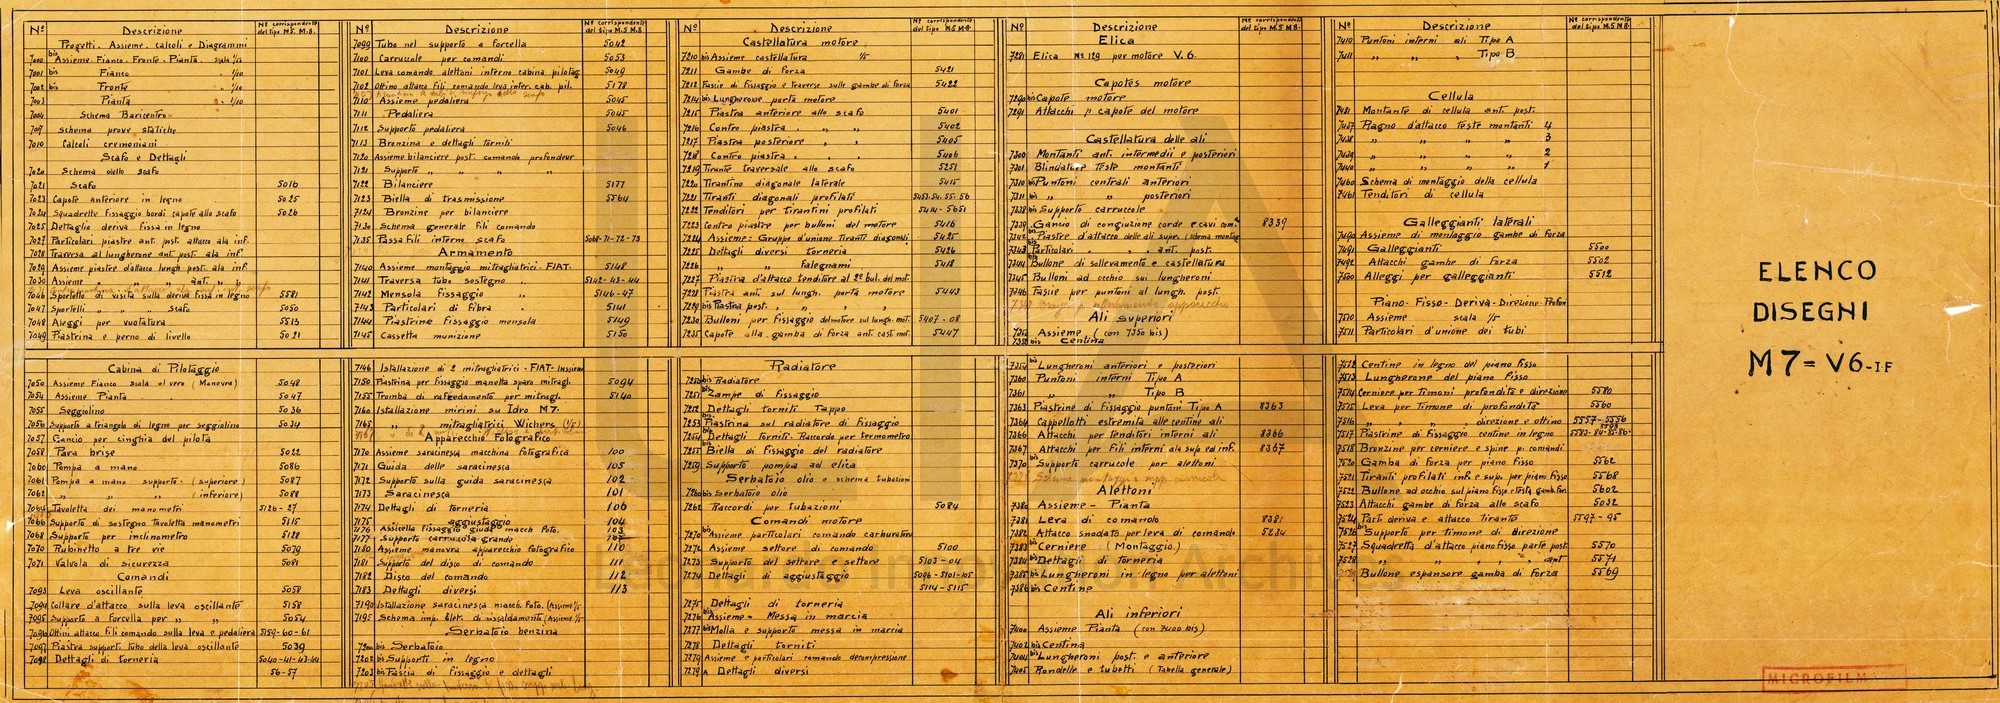 Nº Descrizione Nº corrispondente del tipo M.5 M.8.
Progetti. Assieme. calcoli e Diagrammi
7000 bis Assieme. Fianco. Fronte. Pianta. scala 1/25
7001 bis Fianco " 1/10
7002 bis Fronte " 1/10
7003 Pianta " 1/10
7004 Schema Baricentro
7009 schema prove statiche
7010 Calcoli cremoniani
Scafo e Dettagli
7020 Schema dello scafo
7021 Scafo 5016
7023 Capote anteriore in legno 5025
7024 Squadrette fissaggio bordi capote allo scafo 5026
7025 Dettaglio deriva fissa in legno
7027 Particolari piastre ant. post. attacco ala inf.
7028 Traversa al lungherone ant. post. ala inf.
7029 Assieme piastre d'attacco lungh. post. ala inf
7030 Assieme " " " anti " "
7046 Sportello di visita sulla deriva fissa in legno 5581
7047 Sportelli " " scafo 5050
7048 Aleggi per vuotatura 5513
7049 Piastrina e perno di livello 5021
Cabina di Pilotaggio
7050 Assieme Fianco scala al vero (Manovra) 5048
7054 Assieme Pianta 5047
7055 Seggiolino 5036
7056 Supporto a triangolo di legno per seggiolino 5034
7057 Gancio per cinghia del pilota
7058 Para brise 5022
7060 Pompa a mano 5086
7061 Pompa a mano supporto (superiore) 5087
7062 " " " (inferiore) 5088
7064 Tavoletta dei manometri 5126-27
7066 Supporto di sostegno Tavoletta manometri 5115
7068 Supporto per inclinometro 5128
7070 Rubinetto a tre vie 5079
7071 Valvola di sicurezza 5081
Comandi
7093 Leva oscillante 5058
7094 Collare d'attacco sulla leva oscillante 5158
7095 Supporto a forcella per " " 5054
7096 Ottini attacco fili comando sulla leva e pedaliera 5159-60-61
7097 Piastra support. tubo della leva oscillante 5039
7098 Dettagli di torneria 5040-41-43-44
56-57
Nº Descrizione Nº corrispondente del tipo M.5 M.8.
7099 Tubo nel supporto a forcella 5042
7100 Carruccole per comandi 5053
7101 Leva comando alettoni interno cabina pilotag. 5049
7102 Ottino attacco fili comando leva inter. cab. pil. 5178
7110 Assieme pedaliera 5045
7111 Pedaliera 5045
7112 Supporto pedaliera 5046
7113 Bronzina e dettagli torniti
7120 Assieme bilanciere post. comando profondeur
7121 Supporto " " " "
7122 Bilanciere 5177
7123 Biella di trasmissione 5564
7124 Bronzine per bilanciere
7130 Schema generale fili comando
7135 Passa fili interno scafo 5068-71-72-73
Armamento
7140 Assieme montaggio mitragliatrici - FIAT- 5148
7141 Traversa tubo sostegno " 5142-43-44
7142 Mensola fissaggio " 5146-47
7143 Particolari di fibra " 5141
7144 Piastrine fissaggio mensola 5149
7145 Cassetta munizione 5150
7146 Istallazione di 2 mitragliatrici - FIAT- Insieme
7150 Piastrina per fissaggio manetta sparo mitragl. 5094
7155 Tromba di rafreddamento per mitragl. 5140
7160 Istallazione mirini su Idro M7-
7165 " mitragliatrici Wichers (1/5)
Apparecchio Fotografico
7170 Assieme saracinesca macchina fotografica 100
7171 Guida delle saracinesca 105
7172 Supporto sulla guida saracinesca 102
7173 Saracinesca 101
7174 Dettagli di torneria 106
7175 " aggiustaggio 104
7176 Assicella fissaggio guide macch foto. 103
7177 Supporto carrucola grande 107
7180 Assieme manovra apparecchio fotografico 110
7181 Supporto del disco di comando 111
7182 Disco del comando 112
7183 Dettagli diversi 113
7190 Istallazione saracinesca macch. foto. (Assieme 1/5)
7195 Schema imp. Elet. di riscaldamento (Assieme 1/5)
Serbatoio benzina
7200 bis Serbatoio
7202 bis Supporti in legno
7203 bis Fascia di fissaggio e dettagli
Nº Descrizione Nº corrispondente del tipo M.5 M.8.
Castellatura motore
7210 bis Assieme castellatura 1/5
7211 Gambe di forza 5421
7212 Fascie di fissaggio e traverse sulle gambe di forza 5422
7214 bis Lungherone porta motore
7215 Piastra anteriore allo scafo 5401
7216 Contro piastra " " " 5402
7217 Piastra posteriore " " 5405
7218 Contro piastra " " " 5406
7219 Tirante traversale allo scafo 5251
7220 Tirantino diagonale laterale 5415
7221 Tiranti diagonali profilati 5453-54-55-56
7222 Tenditori per tirantini profilati 5414-5651
7223 Contro piastre per bulloni del motore 5416
7224 Assieme: Gruppo d'unione Tiranti diagonali 5425
7225 Dettagli diversi torneria 5426
7226 " " falegnami 5418
7227 Piastrina d'attacco tenditore al 2º bul. del mot.
7228 Piastra ant. sul lungh. porta motore 5443
7229 bis Piastra post. " " "
7230 Bulloni per fissaggio del motore sul lungh. mot. 5407-08
7235 Capote alla gamba di forza ant. cast. mot. 5447
Radiatore
7250 bis Radiatore
7251 bis Zampe di fissaggio
7252 Dettagli torniti Tappo
7253 bis Piastrina sul radiatore di fissaggio
7254 bis Dettagli torniti- Raccordo per termometro
7255 bis Biella di fissaggio del radiatore
7259 Supporto pompa ad elica
Serbatoio olio e schema tubazioni
7260 bis Serbatoio olio
7262 Raccordi per tubazioni 5084
Comandi motore
7270 bis Assieme particolari comando carburatore
7272 Assieme settore di comando 5100
7273 Supporto del settore e settore 5103-04
7274 Dettagli di aggiustaggio 5096-5101-105
5114-5115
7275 Dettagli di torneria
7276 bis Assieme- Messa in marcia
7277 bis Molla e supporto messa in marcia
7278 Dettagli torniti
7279 Assieme e particolari comando decompressione
7279 A Dettagli diversi
Nº Descrizione Nº corrispondente del tipo M.5 M.8.
Elica
7281 Elica Nº 129 per motore V.6.
Capotes motore
7290 bis Capote motore
7291 Attacchi p capote del motore
Castellatura delle ali
7300 Montanti ant. intermedii e posteriori
7301 Blindature teste montanti
7310 bis Puntoni centrali anteriori
7311 bis " " posteriori
7338 bis Supporto carruccole
7339 Gancio di congiuzione corde e cavi com. 8339
7342 bis Piastre d'attacco delle ali supr. (schema montag
7343 bis Particolari " " ant. post.
7344 bis Bullone di sollevamento e castellatura
7345 Bulloni ad occhio sui lungheroni
7346 Fascie per puntoni al lungh. post.
Ali superiori
7352 Assieme (con 7350 bis)
7358 bis Centina
7359 bis Lungheroni anteriori e posteriori
7360 Puntoni interni Tipo A
7361 " " Tipo B
7363 Piastrine di fissaggio puntoni Tipo A 8363
7364 Cappellotti estremità alle centine ali
7366 Attacchi per tenditori interni ali 8366
7367 Attacchi per fili interni ala sup. ed inf. 8367
7370 bis Supporto carrucole per alettoni
Alettoni
7380 Assieme- Pianta
7381 Leva di comando 8381
7382 Attacco snodato per leva di comando 5234
7383 bis Cerniere (Montaggio)
7384 bis Dettagli di torneria
7385 bis Lungheroni in legno per alettoni
7386 bis Centine
Ali inferiori
7400 Assieme Pianta (con 7400 bis)
7402 bis Centina
7404 bis Lungheroni post. e anteriore
7405 Rondelle e tubetti (Tabella generale)
Nº Descrizione Nº corrispondente del tipo M.5 M.8.
7410 Puntoni interni ali Tipo A
7411 " " " Tipo B
Cellula
7431 Montante di cellula ant. post.
7437 Ragno d'attacco teste montanti 4
7438 " " " " 3
7439 " " " " 2
7440 " " " " 1
7460 Schema di montaggio della cellula
7461 Tenditori di cellula
Galleggianti laterali
7490 Assieme di montaggio gambe di forza
7491 Galleggianti 5500
7492 Attacchi gambe di forza 5502
7500 Alleggi per galleggianti 5512
Piano- Fisso- Deriva- Direzione- Profon
7510 Assieme scala 1/5
7511 Particolari d'unione dei tubi
7512 Centine in legno del piano fisso
7513 Lungherone del piano fisso
7514 Cerniere per timoni profondità e direzione 5580
7515 Leva per timone di profondità 5560
7516 " " " direzione e ottino 5557-5556
7517 Piastrine di fissaggio centine in legno 5583-84-85-86-
7518 Bronzine per cerniere e spine p. comandi
7520 Gamba di forza per piano fisso 5562
7521 Tiranti profilati inf. e sup. per piano fisso 5568
7522 Bullone ad occhio sul piano fisso e testa gamba for. 5602
7523 Attacchi gambe di forza allo scafo 5032
7524 Part. deriva e attacco tirante 5597-95
7526 bis Supporto per timone di direzione
7527 Squadretta d'attacco piano fisso parte post 5570
7528 " " " " ant 5571
Bullone espansore gamba di forza 5569
ELENCO
DISEGNI
M7= V6-I·F
MICROFILM